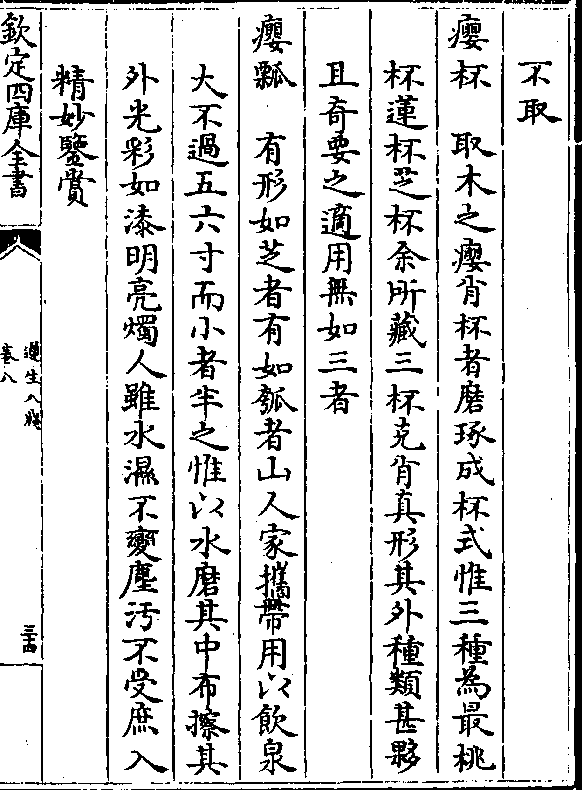 不取
癭杯　取木之癭肖杯者磨琢成杯式惟三種為最桃
杯蓮杯芝杯余所藏三杯克肖真形其外種類甚夥
且奇要之適用無如三者
癭瓢　有形如芝者有如瓠者山人家攜帶用以飲泉
大不過五六寸而小者半之惟以水磨其中布擦其
外光彩如漆明亮燭人雖水濕不變塵汚不受庶入
精妙鑒賞
欽定四庫全書
遵生八牋
卷八
三十四